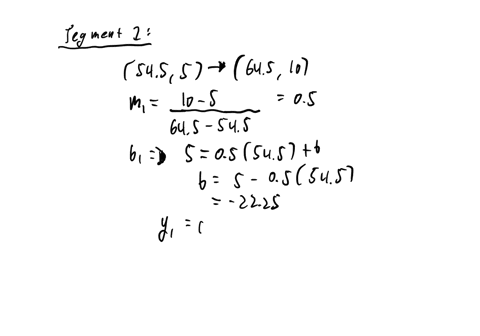 Segment 2:
(54.5, 5) → (64.5, 10)
m₁ = 10 - 5 / 64.5 - 54.5 = 0.5
b₁ => 5 = 0.5(54.5) + b
b = 5 - 0.5(54.5)
= -22.25
y₁ = 0